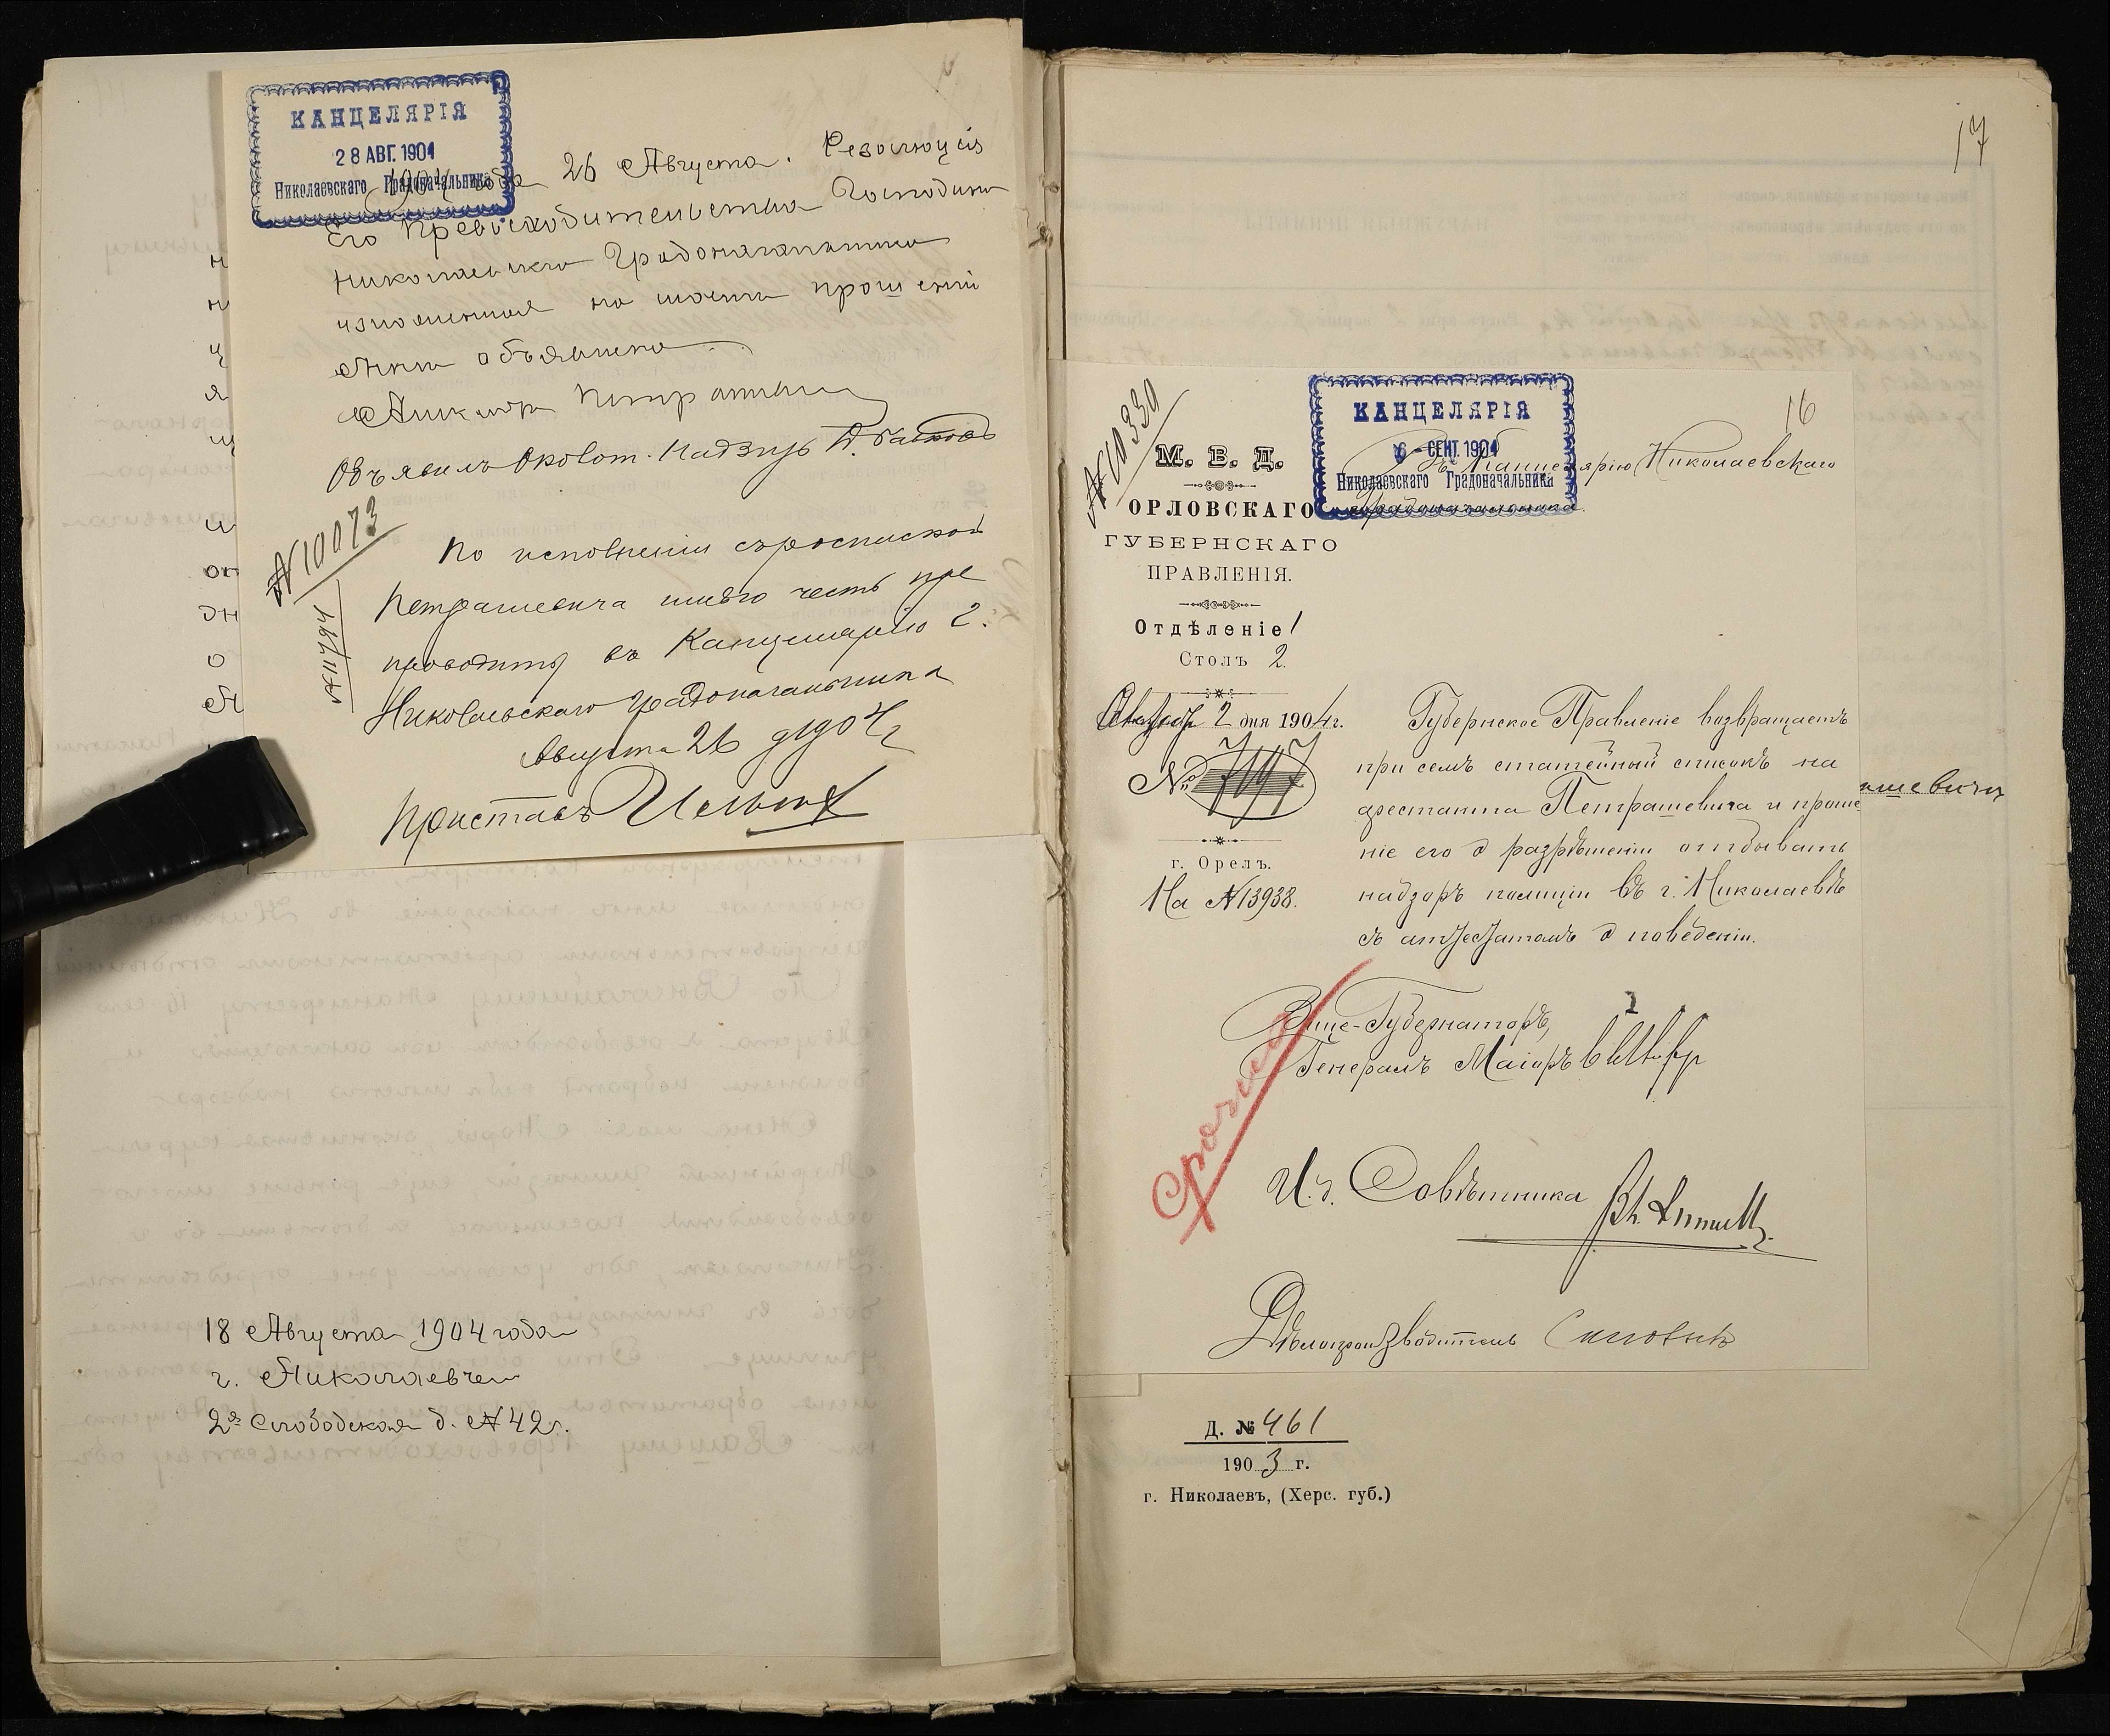 КАНЦЕЛЯРІЯ
28 АВГ. 1904
Николаевского Градоначальника
1904 года 26 Августа. Резолюція
Его Превосходительства Господина
Николаевскаго Градоначальника
изложенная на моемъ прошеніи
мнѣ объявлена
Петрашевичъ
Объявилъ Околот. Надзир.
№10073
По исполненіи съ роспиской
Петрашевича имѣю честь пре
проводить въ Канцелярію Г.
Николаевскаго Градоначальника
Августа 26 д 1904 г
Приставъ
18 Августа 1904 года
г. Николаевъ
2я Слободская д. № 42.
17
16
№10330
КАНЦЕЛЯРІЯ
6 - СЕНТ. 1904
Николаевского Градоначальника
М. В. Д.
ОРЛОВСКАГО
ГУБЕРНСКАГО
ПРАВЛЕНІЯ.
Отдѣленіе 1
Столъ 2.
2 дня 1904 г.
№ 7197
г. Орелъ.
На №13938.
Въ Канцелярію Николаевскаго
Градоначальника.
Губернское Правленіе возвращаетъ
при семъ статейный списокъ на
арестанта Петрашевича и проше
ніе его о разрѣшеніи отбывать
надзоръ полиціи въ г. Николаевѣ
съ аттестатомъ о поведеніи.
ашевичъ
Срочно
Вице-Губернаторъ,
Генералъ Маіоръ
И. д. Совѣтника
Дѣлопроизводитель
Д. № 461
1903 г.
г. Николаевъ, (Херс. губ.)